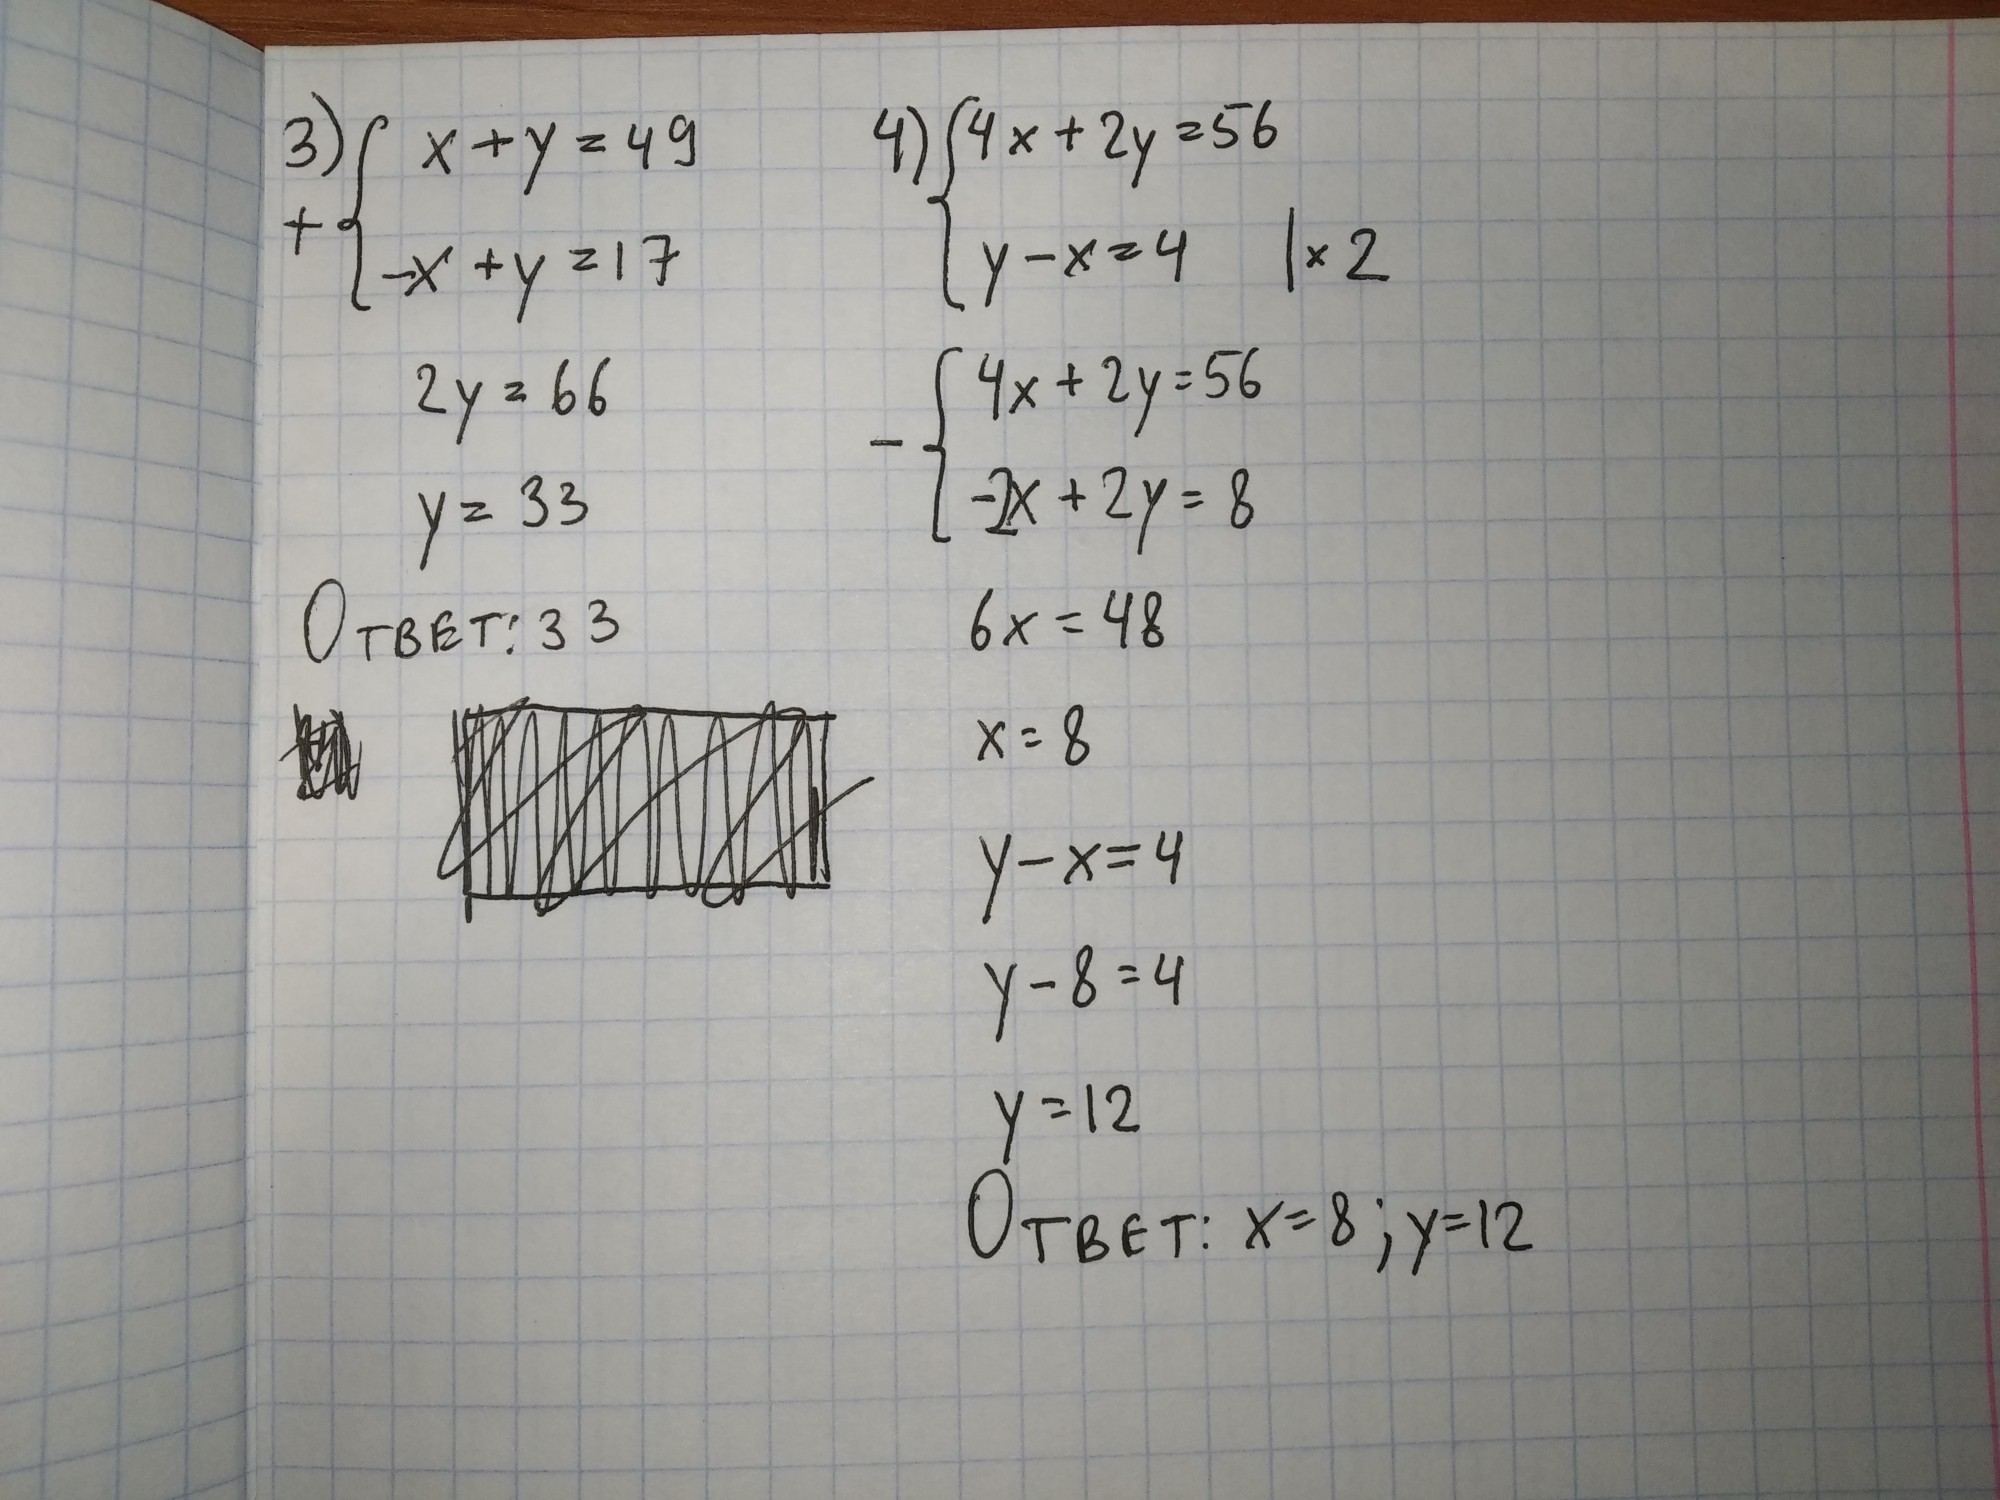 3) { x + y = 49
+ -x + y = 17
2y = 66
y = 33
Ответ: 33
4) { 4x + 2y = 56
y - x = 4 | × 2
- { 4x + 2y = 56
-2x + 2y = 8
6x = 48
x = 8
y - x = 4
y - 8 = 4
y = 12
Ответ: x = 8 ; y = 12